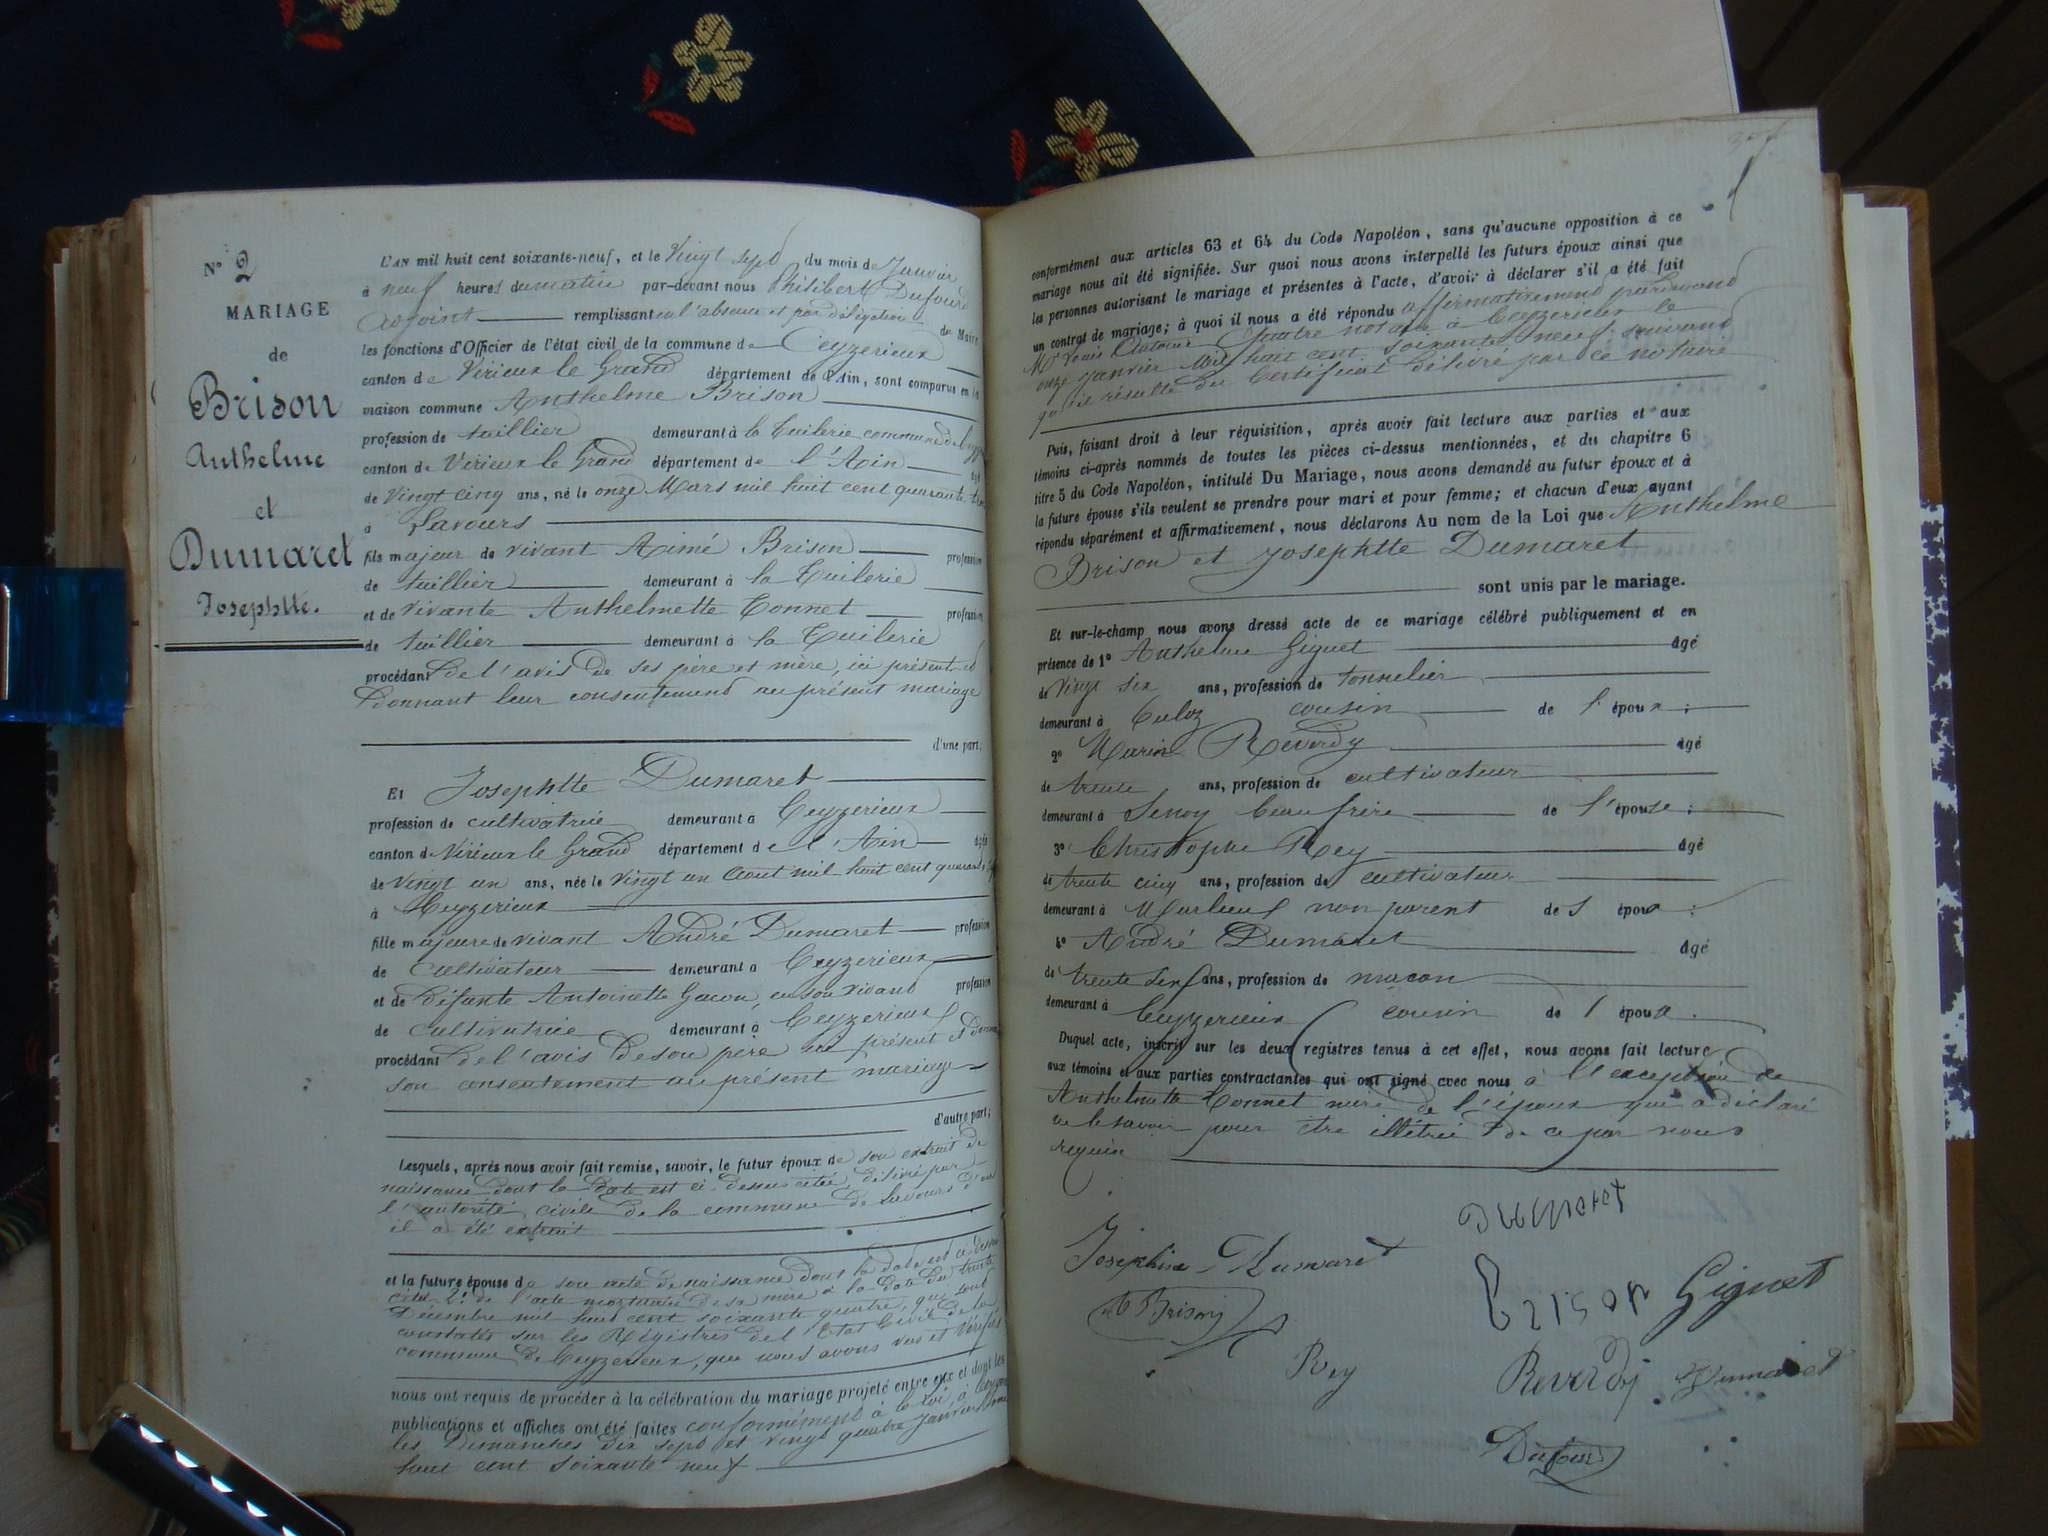 N° 2
MARIAGE
de
Brison
Anthelme
et
Dumaret
Josephtte.
L'AN mil huit cent soixante-neuf, et le Vingt sept du mois de Janvier
à neuf heures du matin par-devant nous Philibert Dufour
adjoint remplissant en l'absence et par délégation du Maire
les fonctions d'Officier de l'état civil de la commune de Ceyzerieux
canton de Virieux le Grand département de l'Ain, sont comparus en la
maison commune Anthelme Brison
profession de tuillier demeurant à la Tuilerie commune de
canton de Virieux le Grand département de l'Ain âgé
de Vingt cinq ans, né le onze Mars mil huit cent quarante trois
à Lavours
fils majeur de vivant Aimé Brison profession
de tuillier demeurant à la Tuilerie
et de vivante Anthelmette Connet profession
de tuillier demeurant à la Tuilerie
procédant de l'avis de ses père et mère, ici présents et
donnant leur consentement au présent mariage
d'une part;
Et Josephtte Dumaret
profession de cultivatrice demeurant à Ceyzerieux
canton de Virieux le Grand département de l'Ain âgée
de Vingt un ans, née le Vingt un Aout mil huit cent quarante
à Ceyzerieux
fille majeure de vivant André Dumaret profession
de cultivateur demeurant à Ceyzerieux
et de défunte Antoinette Gacon, en son vivant profession
de cultivatrice demeurant à Ceyzerieux
procédant de l'avis de son père ici présent et donnant
son consentement au présent mariage
d'autre part;
Lesquels, après nous avoir fait remise, savoir, le futur époux de son extrait de
naissance dont la date est ci-dessus citée, délivré par
l'autorité civile de la commune de Lavours d'où
il a été extrait
et la future épouse de son acte de naissance dont la date est ci dessus
citée 2° de l'acte mortuaire de sa mère à la date du trente
Décembre mil huit cent soixante quatre, qui sont
constatés sur les Régistres de l'Etat Civil de la
commune de Ceyzerieux, que nous avons vus et vérifiés
nous ont requis de procéder à la célébration du mariage projeté entre eux et dont les
publications et affiches ont été faites conformément à la loi, à
les Dimanches dix sept et vingt quatre Janvier mil
huit cent soixante neuf
conformément aux articles 63 et 64 du Code Napoléon, sans qu'aucune opposition à ce
mariage nous ait été signifiée. Sur quoi nous avons interpellé les futurs époux ainsi que
les personnes autorisant le mariage et présentes à l'acte, d'avoir à déclarer s'il a été fait
un contrat de mariage; à quoi il nous a été répondu affirmativement par devant
Me Louis Antoine notaire à Ceyzerieux le
onze Janvier Mil huit cent soixante neuf suivant
qu'il résulte du Certificat délivré par ce notaire
Puis, faisant droit à leur réquisition, après avoir fait lecture aux parties et aux
témoins ci-après nommés de toutes les pièces ci-dessus mentionnées, et du chapitre 6
titre 5 du Code Napoléon, intitulé Du Mariage, nous avons demandé au futur époux et à
la future épouse s'ils veulent se prendre pour mari et pour femme; et chacun d'eux ayant
répondu séparément et affirmativement, nous déclarons Au nom de la Loi que Anthelme
Brison et Josephtte Dumaret
sont unis par le mariage.
Et sur-le-champ nous avons dressé acte de ce mariage célébré publiquement et en
présence de 1° Anthelme Giguet âgé
de Vingt six ans, profession de tonnelier
demeurant à Culoz cousin de l'époux;
2° Marin Reverdy âgé
de trente ans, profession de cultivateur
demeurant à Senoy beau frère de l'épouse;
3° Christophe Rey âgé
de trente cinq ans, profession de cultivateur
demeurant à Marlieu non parent de l'époux;
4° André Dumaret âgé
de trente sept ans, profession de maçon
demeurant à Ceyzerieux cousin de l'épouse.
Duquel acte, inscrit sur les deux registres tenus à cet effet, nous avons fait lecture
aux témoins et aux parties contractantes qui ont signé avec nous à l'exception de
Anthelmette Connet mère de l'époux qui a déclaré
ne le savoir pour être illétrée de ce par nous
requise
Dumaret
Josephine Dumaret
Brison Giguet
Brison
Rey Reverdy Dumaret
Dufour